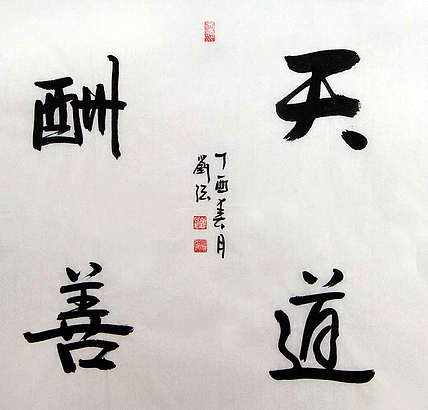 天道
酬善
丁酉春月
劉